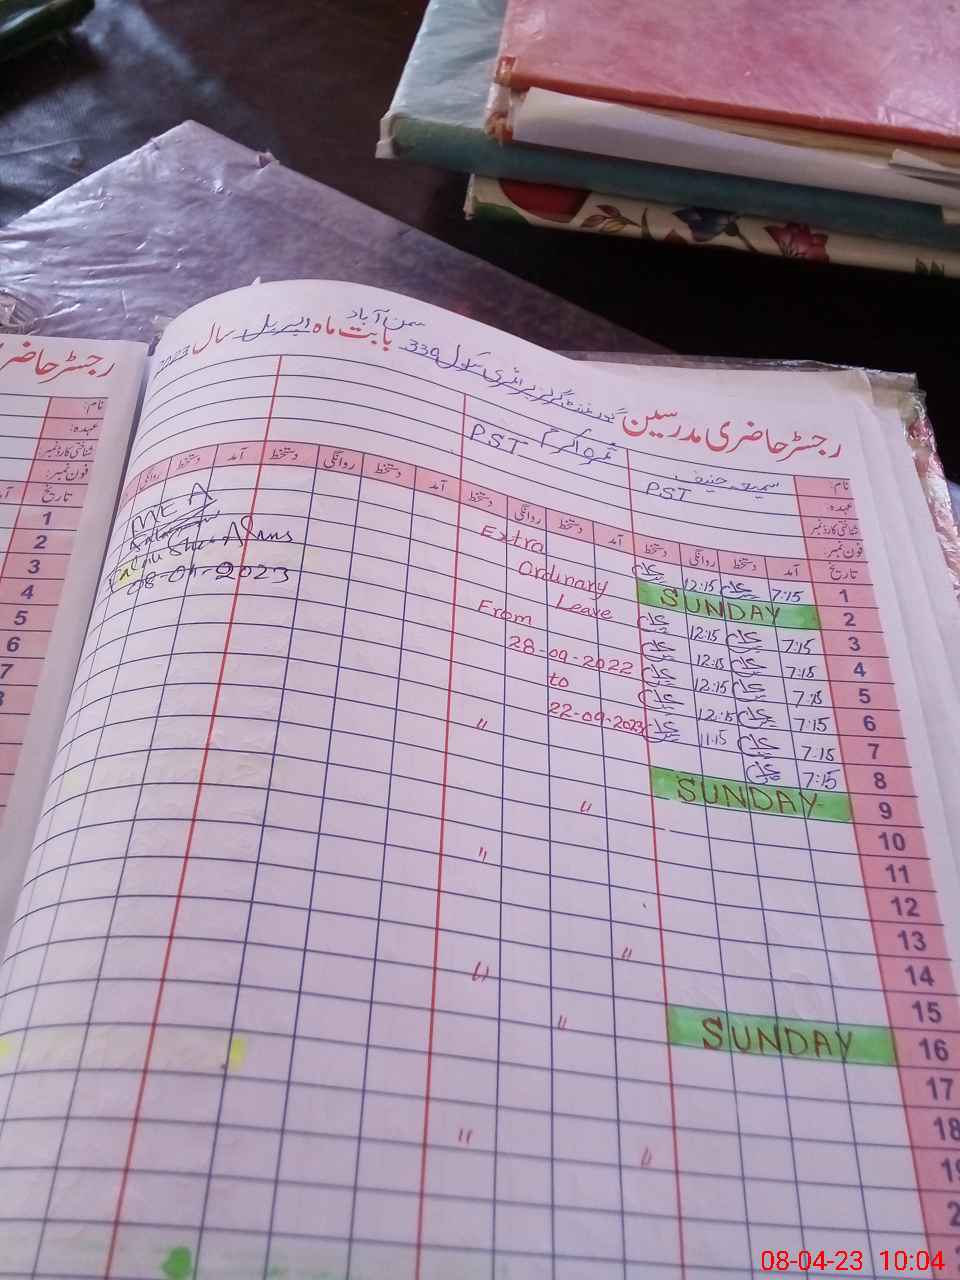 رجسٹر حاضری مدرسین گورنمنٹ گرلز پرائمری سکول 339 سمن آباد بابت ماہ اپریل سال 2023
نام: سمیعہ حنیف
عہدہ: PST PST
شناختی کارڈ نمبر:
فون نمبر:
تاریخ آمد دستخط روانگی دستخط آمد دستخط روانگی دستخط آمد دستخط روانگی دستخط آمد دستخط روانگی
1 7:15 12:15 Extra
2 SUNDAY Ordinary
3 7:15 12:15 Leave
4 7:15 12:15 From
5 7:15 12:15 28-09-2022
6 7:15 12:15 to
7 7:15 11:15 22-09-2023
8 7:15 "
9 SUNDAY
10 "
11 "
12
13
14 " "
15
16 SUNDAY "
17
18
19 " "
MEA
08-04-2023
رجسٹر حاضری
نام:
عہدہ:
شناختی کارڈ نمبر:
فون نمبر:
تاریخ
1
2
3
4
5
6
7
08-04-23 10:04